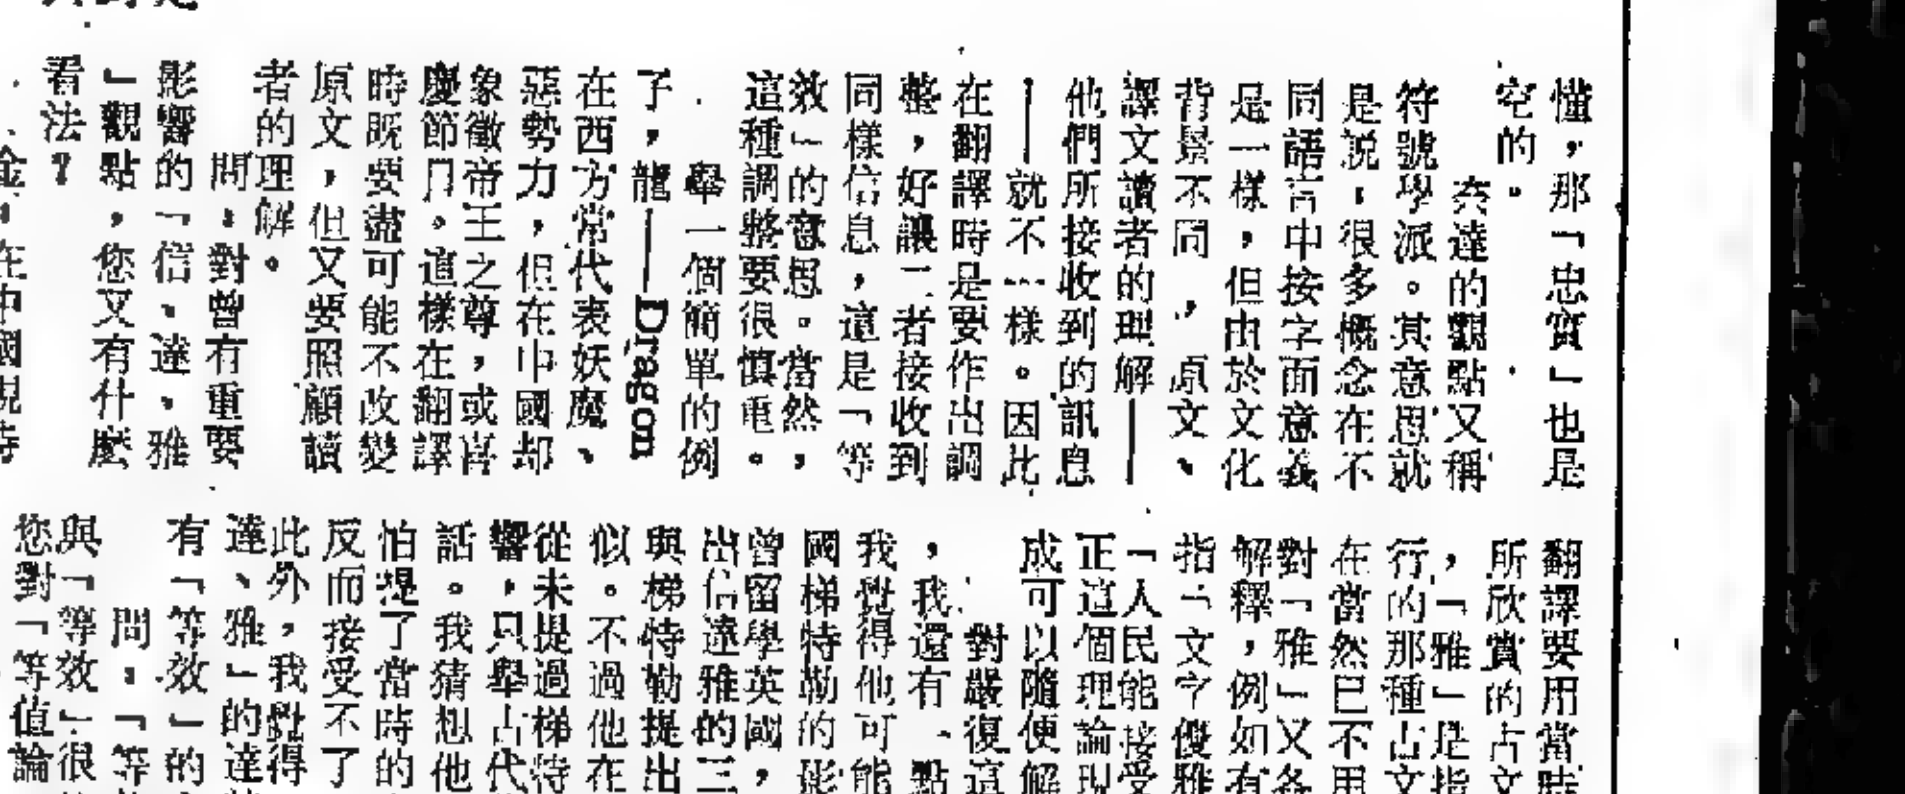 懂，那「忠實」也是
空的。
奈達的觀點又稱
符號學派。其意思就
是說，很多概念在不
同語言中按字面意義
是一樣，但由於文化
背景不同，原文、
譯文讀者的理解——
他們所接收到的訊息
——就不一樣。因此
在翻譯時是要作出調
整，好讓二者接收到
同樣信息，這是「等
效」的意思。當然，
這種調整要很慎重。
舉一個簡單的例
子，龍——Dragon
在西方常代表妖魔、
惡勢力，但在中國却
象徵帝王之尊，或喜
慶節日。這樣在翻譯
時既要盡可能不改變
原文，但又要照顧讀
者的理解。
問：對曾有重要
影響的「信、達、雅
」觀點，您又有什麼
看法？
金：在中國現時
翻譯要用當時
所欣賞的古文
，「雅」是指
行的那種古文
在當然已不用
對「雅」又各
解釋，例如有
指「文字優雅
「人民能接受
正這個理論現
成可以隨便解
對嚴復這
，我還有一點
我覺得他可能
國梯特勒的影
曾留學英國，
出信達雅的三
與梯特勒提出
似。不過他在
從未提過梯特
響，只舉古代
話。我猜想他
怕提了當時的
反而接受不了
此外，我覺得
達、雅」的達
有「等效」的
問：「等
與「等效」很
您對「等值論